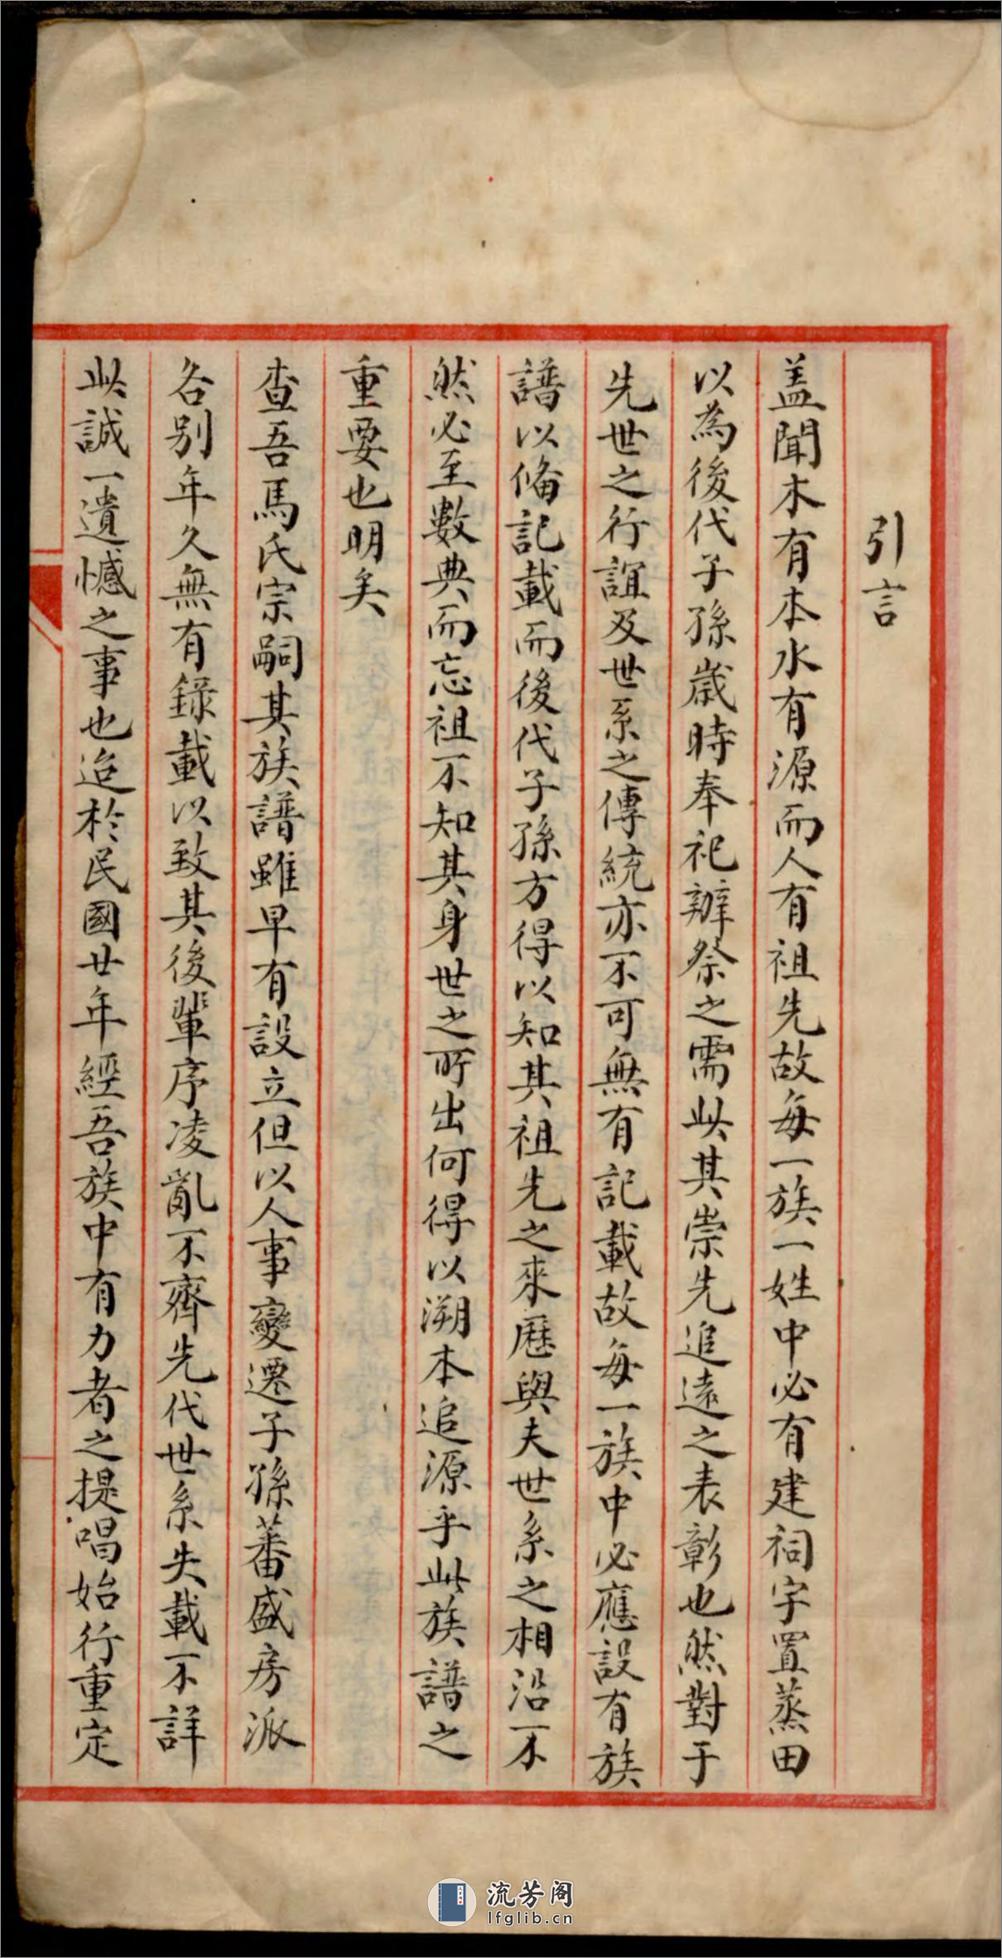 引言
盖聞木有本水有源而人有祖先故每一族一姓中必有建祠宇置蒸田
以為後代子孫歲時奉祀辦祭之需此其崇先追遠之表彰也然對于
先世之行誼及世系之傳統亦不可無有記載故每一族中必應設有族
譜以俻記載而後代子孫方得以知其祖先之來歷與夫世系之相沿不
然必至數典而忘祖不知其身世之所出何得以溯本追源乎此族譜之
重要也明矣
查吾馬氏宗嗣其族譜雖早有設立但以人事變遷子孫蕃盛房派
各別年久無有錄載以致其後輩序凌亂不齊先代世系失載不詳
此誠一遺憾之事也迨於民國廿年經吾族中有力者之提唱始行重定
流芳阁
lfglib.cn